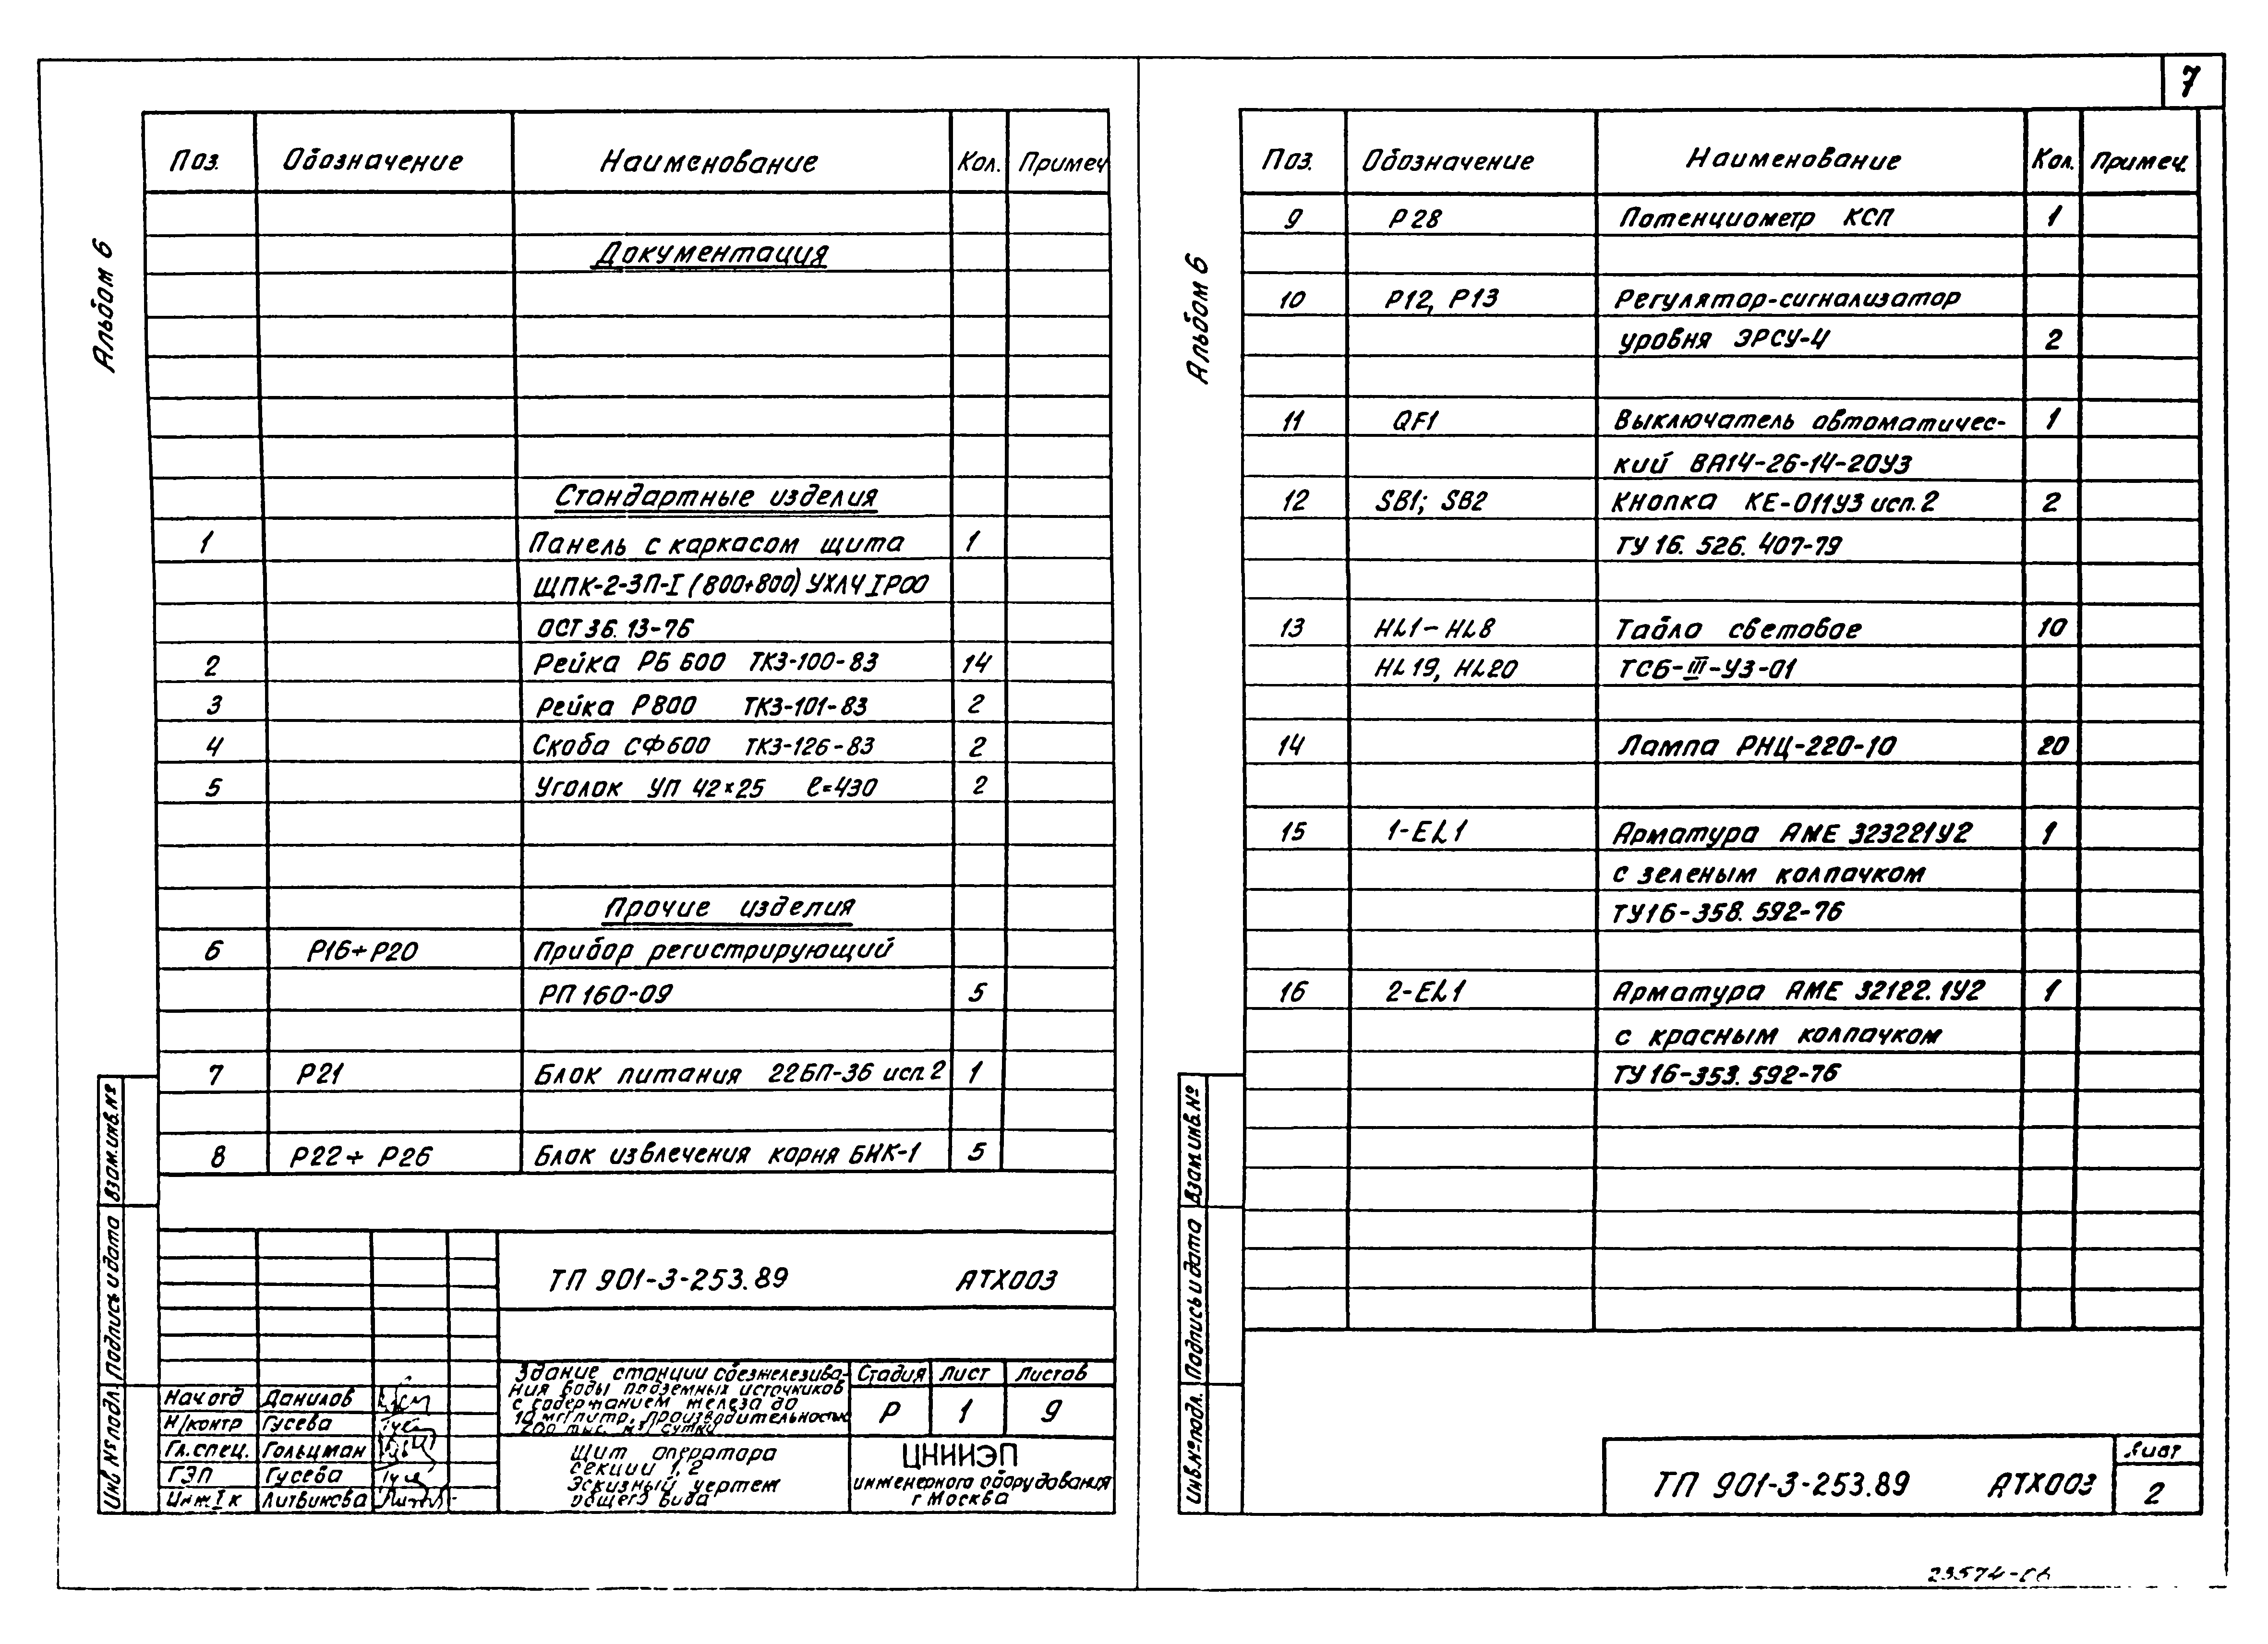 7
Альбом 6
Поз. Обозначение Наименование Кол. Примеч
Документация
Стандартные изделия
1 Панель с каркасом щита 1
ЩПК-2-ЗП-I (800+800) УХЛ4 IP00
ОСТ 36. 13-76
2 Рейка РБ 600 ТКЗ-100-83 14
3 Рейка Р800 ТКЗ-101-83 2
4 Скоба СФ600 ТКЗ-126-83 2
5 Уголок УП 42×25 ℓ=430 2
Прочие изделия
6 Р16÷Р20 Прибор регистрирующий
РП 160-09 5
7 Р21 Блок питания 22БП-36 исп.2 1
8 Р22÷ Р26 Блок извлечения корня БИК-1 5
ТП 901-3-253.89 АТХ003
Здание станции обезжелезива-
ния воды подземных источников
с содержанием железа до
10 мг/литр, производительностью
200 тыс. м³/сутки
Стадия Лист Листов
Р 1 9
Нач отд Данилов
Н/контр Гусева
Гл. спец. Гольцман
ГЭП Гусева
Инж I к Литвинова
Щит оператора
секции 1,2
Эскизный чертеж
общего вида
ЦНИИЭП
инженерного оборудования
г Москва
Инв № подл. Подпись и дата Взам. инв. №
Альбом 6
Поз. Обозначение Наименование Кол. Примеч.
9 Р28 Потенциометр КСП 1
10 Р12, Р13 Регулятор-сигнализатор
уровня ЭРСУ-4 2
11 QF1 Выключатель автоматичес- 1
кий ВА14-26-14-20У3
12 SB1; SB2 Кнопка КЕ-011У3 исп. 2 2
ТУ 16. 526. 407-79
13 HL1 - HL8 Табло световое 10
HL19, HL20 ТСБ-III-У3-01
14 Лампа РНЦ-220-10 20
15 1-EL1 Арматура АМЕ 323221У2 1
с зеленым колпачком
ТУ16-358. 592-76
16 2-EL1 Арматура АМЕ 32122.1У2 1
с красным колпачком
ТУ 16-353. 592-76
Инв. № подл. Подпись и дата Взам инв. №
ТП 901-3-253.89 АТХ003
Лист
2
23574-06